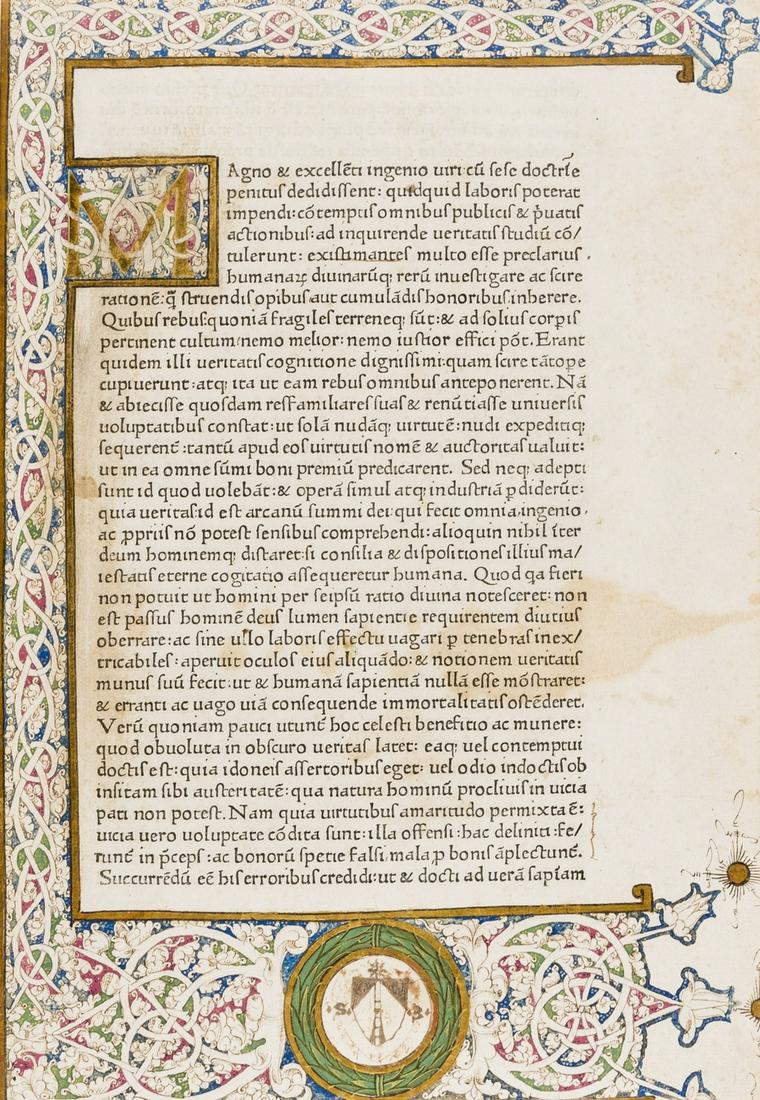 MAgno & excellẽti ingenio uiri cũ sese doctrīe
penitus dedidissent: quidquid laboris poterat
impendi: cõtemptis omnibus publicis & p̃uatis
actionibus: ad inquirende ueritatis studiũ cõ/
tulerunt: existimantes multo esse preclarius.
humanaꝝ diuinarũq; rerũ inuestigare ac scire
rationẽ: q̃ struendis opibus aut cumulãdis honoribus inherere.
Quibus rebus: quoniã fragiles terreneq; sũt: & ad solius corꝑis
pertinent cultum: nemo melior: nemo iustior effici põt. Erant
quidem illi ueritatis cognitione dignissimi: quam scire tãtoꝑe
cupiuerunt: atq; ita ut eam rebus omnibus anteponerent. Nã
& abiecisse quosdam res familiares suas & renũtiasse uniuersis
uoluptatibus constat: ut solã nudãq; uirtutẽ: nudi expeditiq;
sequerent̃: tantũ apud eos uirtutis nomẽ & auctoritas ualuit:
ut in ea omne sũmi boni premiũ predicarent. Sed neq; adepti
sunt id quod uolebãt: & operã simul atq; industriã ꝑdiderũt:
quia ueritas id est arcanũ summi dei: qui fecit omnia, ingenio.
ac ꝓpriis nõ potest sensibus comprehendi: alioquin nihil ĩter
deum hominemq; distaret: si consilia & dispositiones illius ma/
iestatis eterne cogitatio assequeretur humana. Quod qa fieri
non potuit ut homini per seipsũ ratio diuina notesceret: non
est passus hominẽ deus lumen sapientie requirentem diutius
oberrare: ac sine ullo laboris effectu uagari ꝑ tenebras inex/
tricabiles: aperuit oculos eius aliquãdo: & notionem ueritatis
munus suũ fecit: ut & humanã sapientiã nullã esse mõstraret:
& erranti ac uago uiã consequende immortalitatis ostẽderet.
Verũ quoniam pauci utunt̃ hoc celesti benefitio ac munere:
quod obuoluta in obscuro ueritas latet: eaq; uel contemptui
doctis est: quia idoneis assertoribus eget: uel odio indoctis ob
insitam sibi austeritatẽ: qua natura hominũ procliuis in uicia
pati non potest. Nam quia uirtutibus amaritudo permixta ẽ:
uicia uero uoluptate cõdita sunt: illa offensi: hac deliniti: fe/
runt̃ in p̃ceps: ac bonorũ spetie falsi, mala ꝓ bonis ãplectunt̃.
Succurrẽdũ eẽ his erroribus credidi: ut & docti ad uerã sapĩam
S. B.